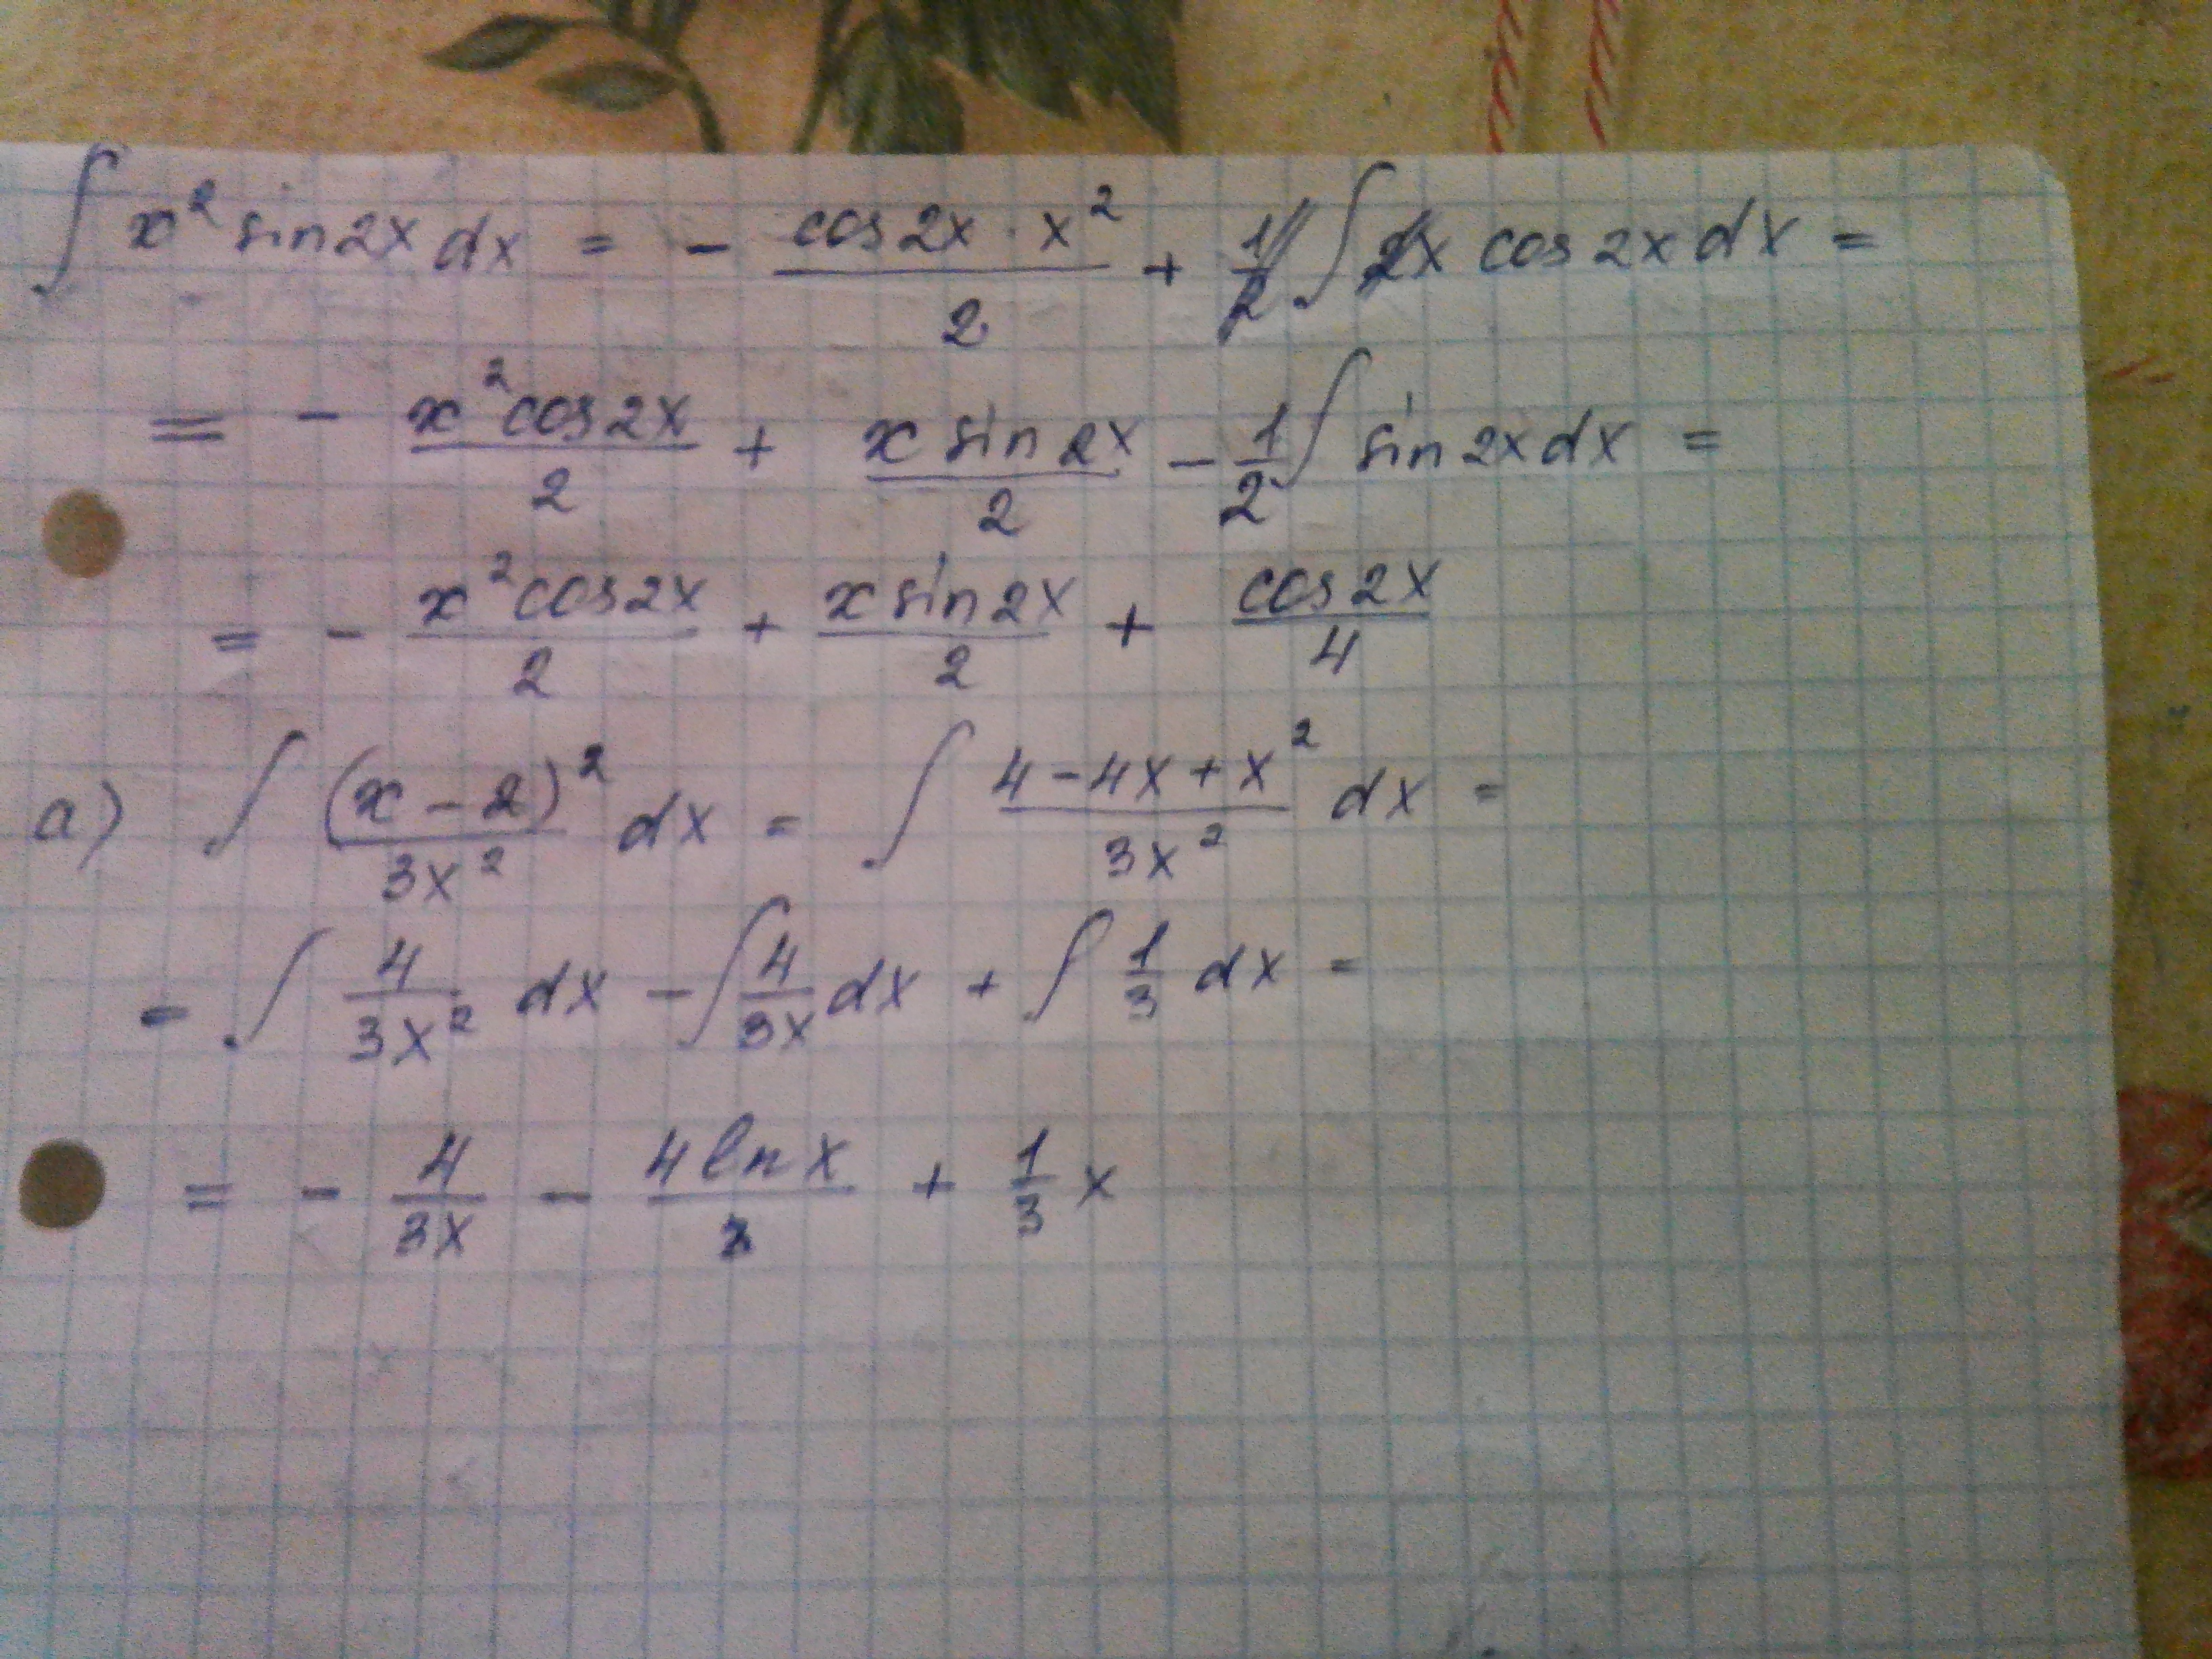 ∫ x² sin2x dx = - (cos2x · x²)/2 + 1/2 ∫ 2x cos2x dx =
= - (x² cos2x)/2 + (x sin2x)/2 - 1/2 ∫ sin2x dx =
= - (x² cos2x)/2 + (x sin2x)/2 + (cos2x)/4
a) ∫ (x-2)²/(3x²) dx = ∫ (4-4x+x²)/(3x²) dx =
= ∫ 4/(3x²) dx - ∫ 4/(3x) dx + ∫ 1/3 dx =
= - 4/(3x) - (4 ln x)/3 + 1/3 x